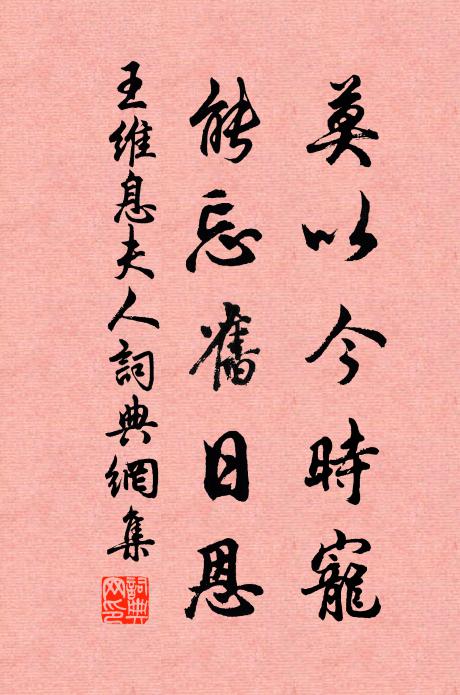 莫以今時寵
能忘舊日恩
王維息夫人詞典網集
詞典網印